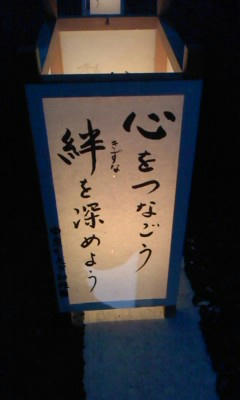 心をつなごう
絆を深めよう
きずな